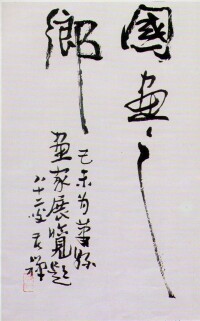 國畫之
鄉
己未為蕭縣
畫家展覽題
八十二叟苦禪